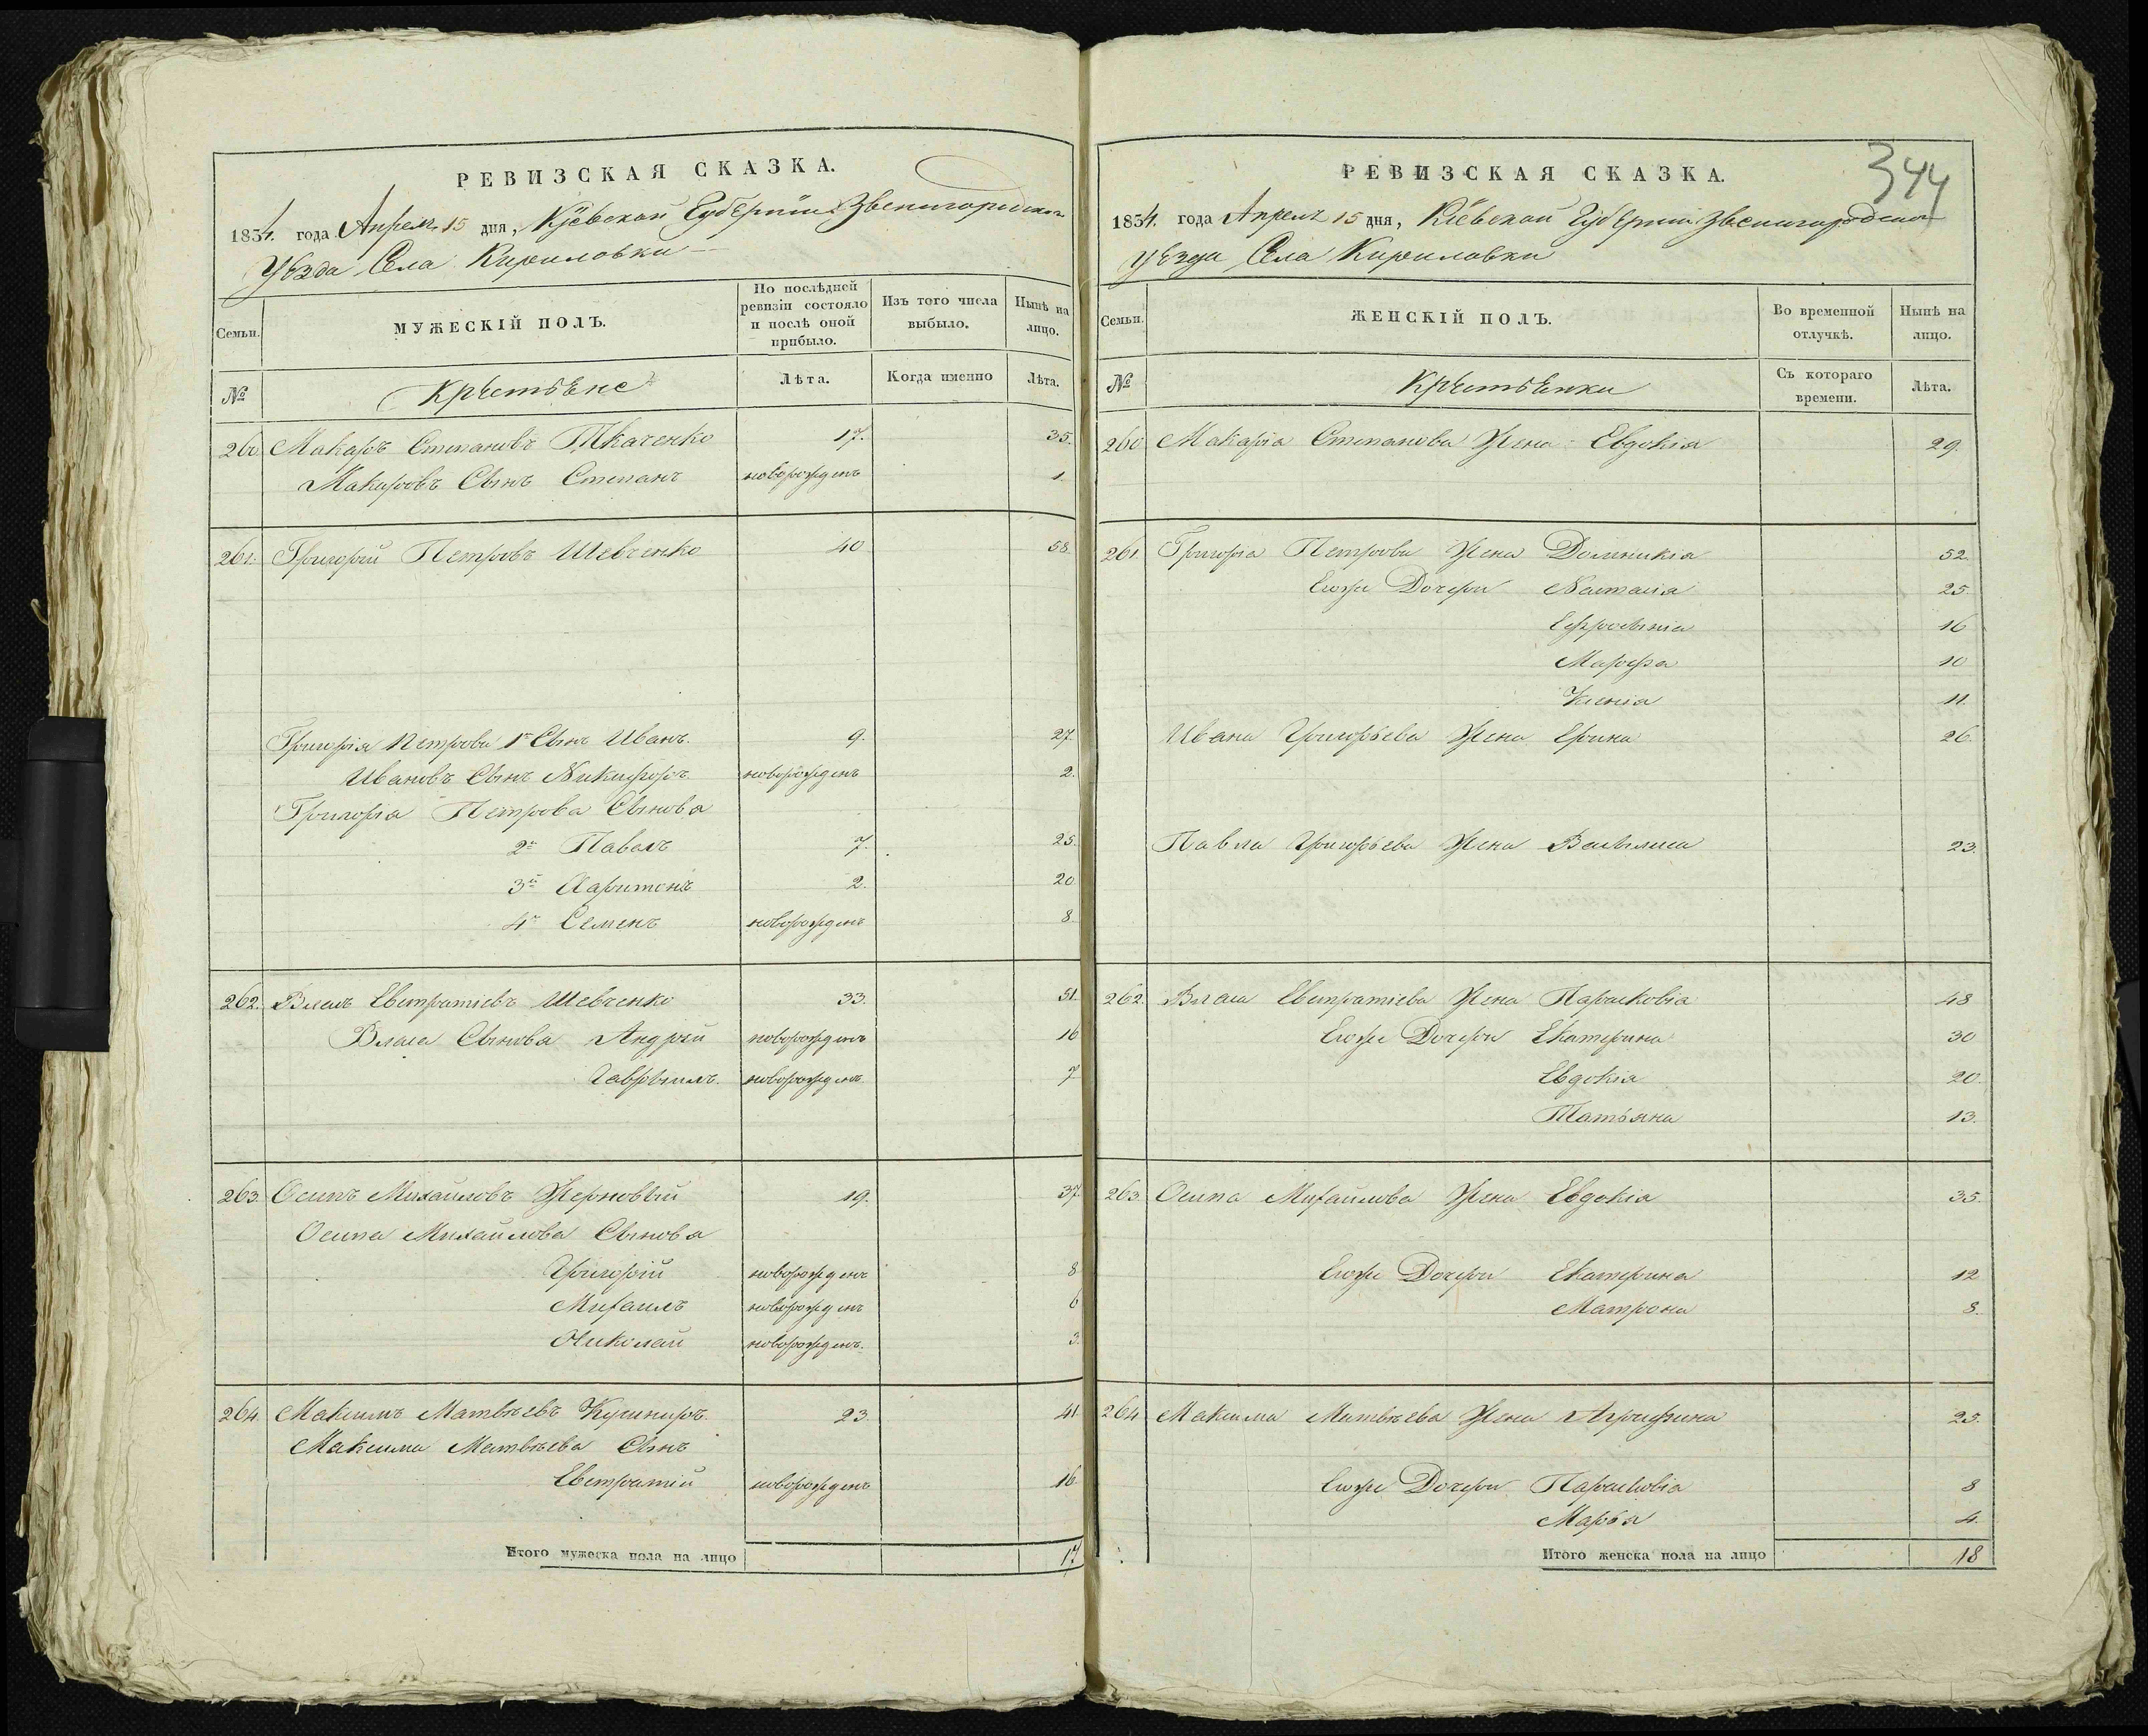 РЕВИЗСКАЯ СКАЗКА.
1834. года Апреля 15 дня, Кіевской Губерніи Звенигородского
Уѣзда Села Кириловки
Семьи.
МУЖЕСКІЙ ПОЛЪ.
По послѣдней ревизіи состояло и послѣ оной прибыло.
Изъ того числа выбыло.
Нынѣ на лицо.
№
Крѣстьѣне
Лѣта.
Когда именно
Лѣта.
260 Макаръ Степановъ Ткаченко 17. 35.
Макаровъ Сынъ Степанъ новорожденъ 1
261. Григорій Петровъ Шевченко 40 58.
Григорія Петрова 1й Сынъ Иванъ. 9. 27
Ивановъ Сынъ Никифоръ новорожденъ 2.
Григорія Петрова Сыновья
2й Павелъ 7. 25.
3й Харитонъ 2. 20
4й Семенъ новорожденъ 8
262. Власъ Евстратіевъ Шевченко 33. 51.
Власа Сыновья Андрей новорожденъ 16
Гаврыилъ. новорожденъ 7
263. Осипъ Михайловъ Жерновый 19. 37.
Осипа Михайлова Сыновья
Григорій новорожденъ 8
Михаилъ новорожденъ 6
Николай новорожденъ. 3.
264. Максимъ Матвѣевъ Кушниръ. 23 41
Максима Матвѣева Сынъ
Евстратій новорожденъ 16
Итого мужеска пола на лицо 17
344
РЕВИЗСКАЯ СКАЗКА.
1834. года Апреля 15 дня, Кіевской Губерніи Звенигородского
Уѣзда Села Кириловки
Семьи.
ЖЕНСКІЙ ПОЛЪ.
Во временной отлучкѣ.
Нынѣ на лицо.
№
Крѣстьѣнки
Съ котораго времени.
Лѣта.
260 Макарія Степанова Жена Евдокія 29.
261. Григорія Петрова Жена Доминикія 52.
Егоже Дочери Наталія 25.
Ефросынія 16
Марфа 10
Ксенія 11.
Ивана Григорьева Жена Ерина 26.
Павла Григорьева Жена Василиса 23.
262. Власа Евстратіева Жена Парасковія 48
Егоже Дочери Екатерина 30
Евдокія 20.
Татьяна 13.
263. Осипа Михайлова Жена Евдокія 35.
Егоже Дочери Екатерина 12
Матрона 8.
264 Максима Матвѣева Жена Агрифина 25.
Егоже Дочери Парасковія 8
Марья 4.
Итого женска пола на лицо 18